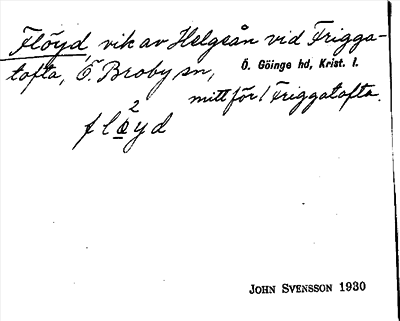 Flöyd, vik av Helgeån vid Frigga-
tofta, Ö. Broby sn, Ö. Göinge hd, Krist. l.
mitt för / Friggatofta.
2
flöyd
JOHN SVENSSON 1930